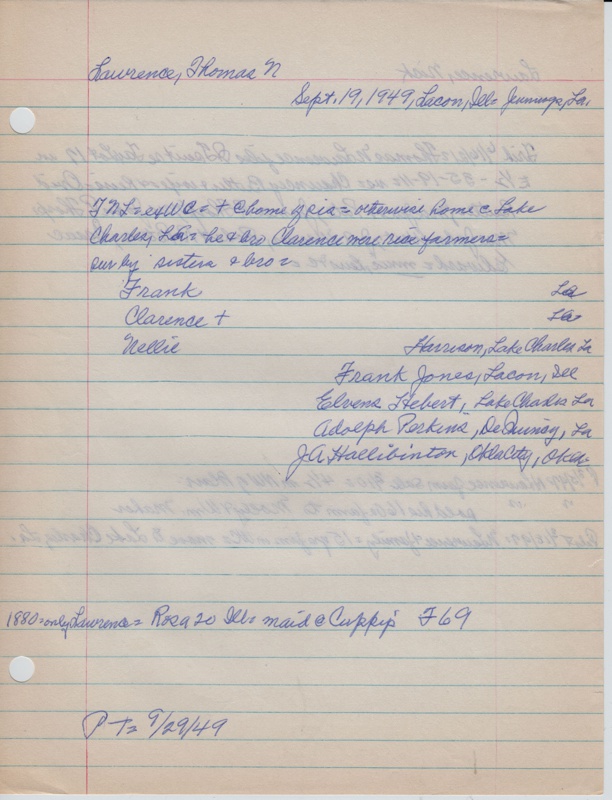 Lawrence, Thomas N
Sept. 19, 1949, Lacon, Ill = Jennings, La.
TNL = ex WC = + @ home of sis = otherwise home @ Lake
Charles, La = he & bro Clarence were rice farmers =
sur by sisters & bro =
Frank La
Clarence + La
Nellie Harrison, Lake Charles La
Frank Jones, Lacon, Ill
Elvena Hebert, Lake Charles La
Adolph Perkins, DeQuincy, La
JA Hallibinton, Okla City, Okla
1880 = only Lawrence = Rosa 20 Ill = maid @ Cuppip's F69
P T = 9/29/49